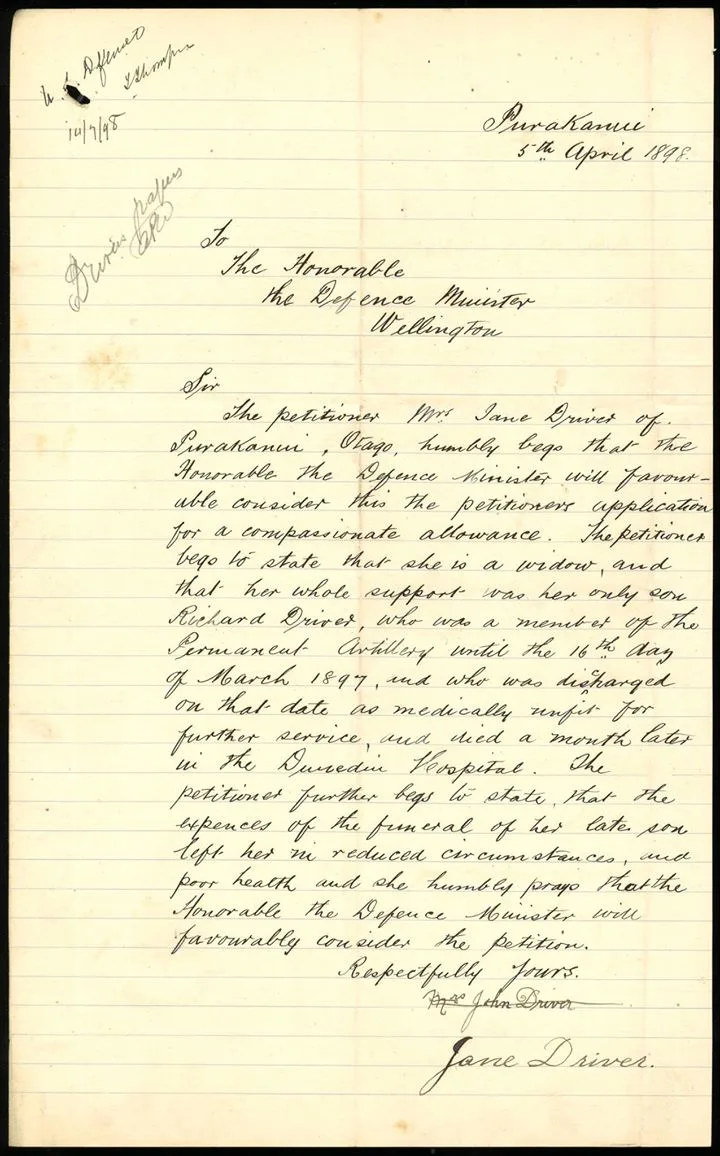 U. S. Defence
14/7/98
Drivers papers
Purakanui
5th April 1898.
To
The Honorable
the Defence Minister
Wellington
Sir
The petitioner Mrs Jane Driver of.
Purakanui, Otago, humbly begs that the
Honorable the Defence Minister will favour-
able consider this the petitioners application
for a compassionate allowance. The petitioner
begs to state that she is a widow, and
that her whole support was her only son
Richard Driver, who was a member of the
Permanent Artillery until the 16th day
of March 1897, and who was discharged
on that date as medically unfit for
further service, and died a month later
in the Dunedin Hospital. The
petitioner further begs to state, that the
expences of the funeral of her late son
left her in reduced circumstances, and
poor health and she humbly prays that the
Honorable the Defence Minister will
favourably consider the petition.
Respectfully Yours.
Mrs John Driver
Jane Driver.